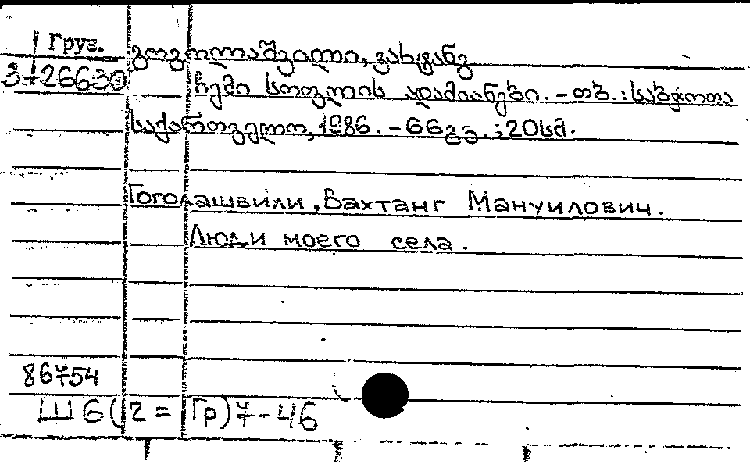 Груз.
გოგოლაშვილი, ვახტანგ
3-126630
ჩემი სოფლის ადამიანები. - თბ. : საბჭოთა
საქართველო, 1986. - 66გვ. ; 20სმ.
Гоголашвили, Вахтанг Мануилович.
Люди моего села.
86754
Ш6(2=Гр)7-46